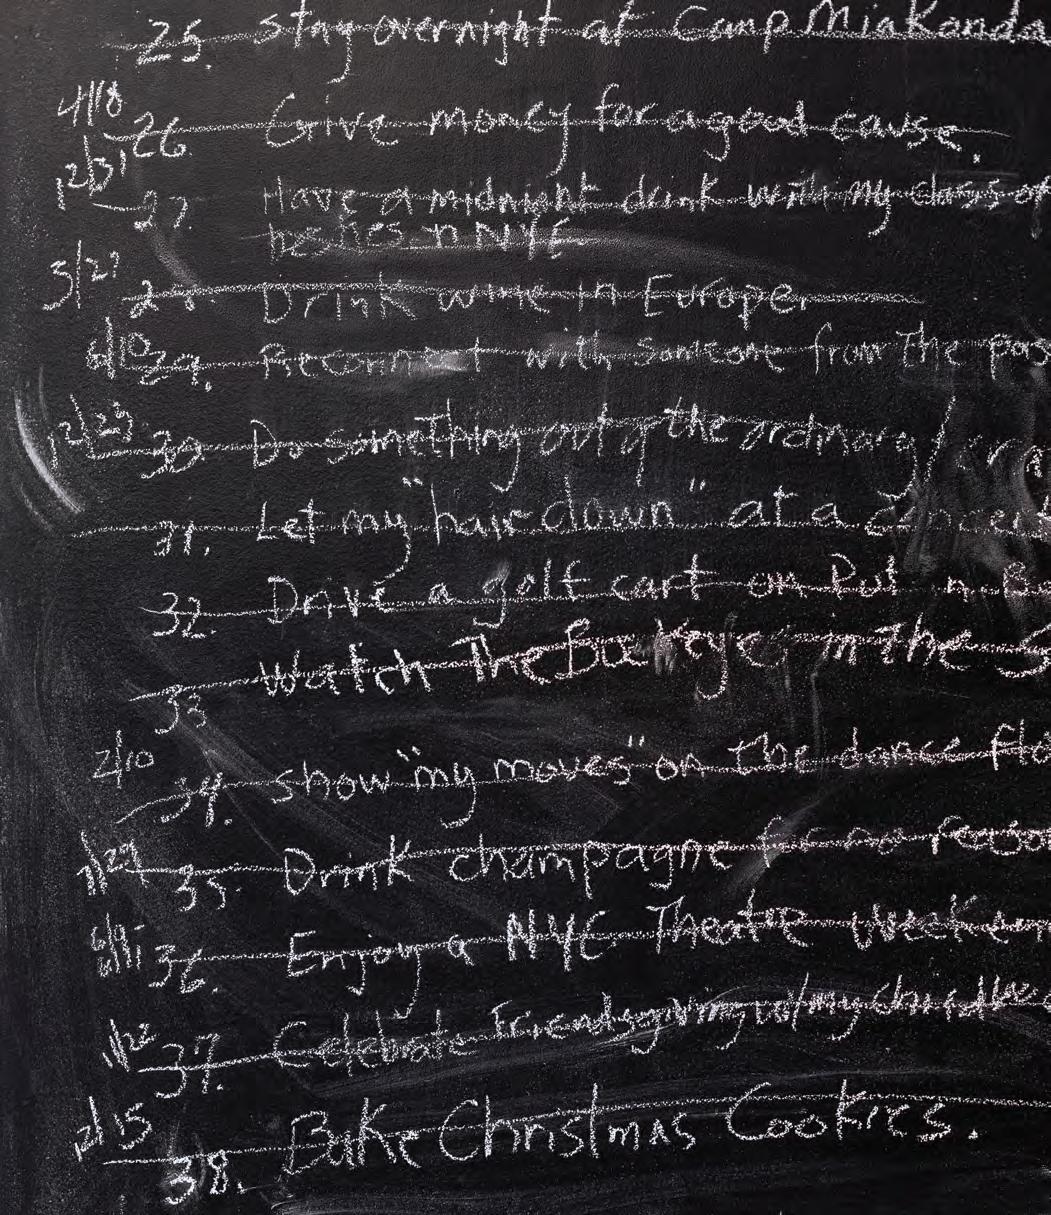 25. Stay overnight at Camp MiaKonda
4/18 26. Give money for a good cause.
12/31 27. Have a midnight drink with my class of
besties in NYE
3/27 28. Drink wine in Europe.
6/10 29. Reconnect with Someone from The pas
12/29 30. Do something out of the ordinary
31. Let my "hair down" at a concert
32. Drive a golf cart on Put-n-B
33 Watch The Buckeyes in The S
2/10 34. Show "my moves" on The dance flo
11/29 35. Drink champagne for no reaso
6/9 36. Enjoy a NYC Theatre Weeken
11/22 37. Celebrate Friendsgiving w/ my
12/15 38. Bake Christmas Cookies.